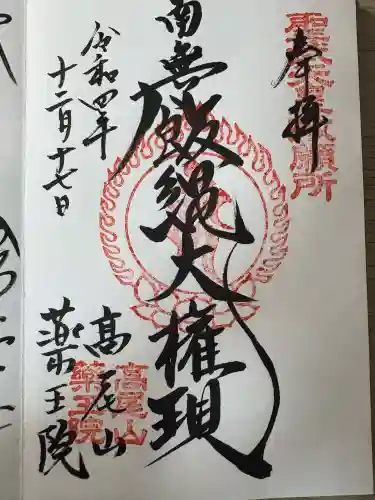 奉拝
南無飯縄大権現
令和四年
十二月十七日
高尾山
薬王院
高尾山
薬王院